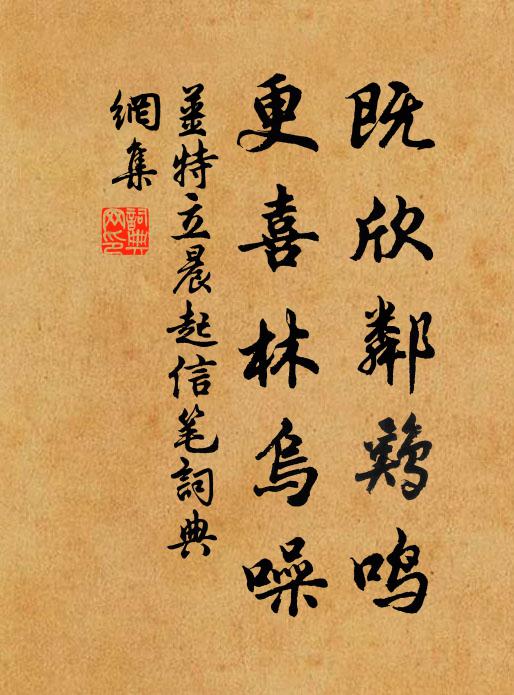 既欣鄰鷄鳴
更喜林烏噪
姜特立晨起信笔詞典
網集
詞典
网印